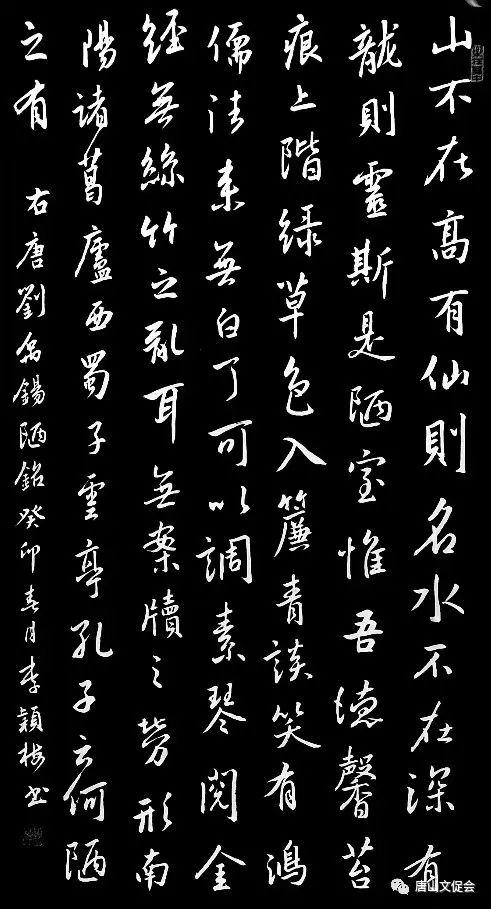 山不在高有仙則名水不在深有
龍則靈斯是陋室惟吾德馨苔
痕上階緑草色入簾青談笑有鴻
儒往来無白丁可以調素琴閱金
經無絲竹之亂耳無案牘之勞形南
陽諸葛廬西蜀子雲亭孔子云何陋
之有
右唐劉禹錫陋銘癸卯春月李穎梅书
唐山文促会